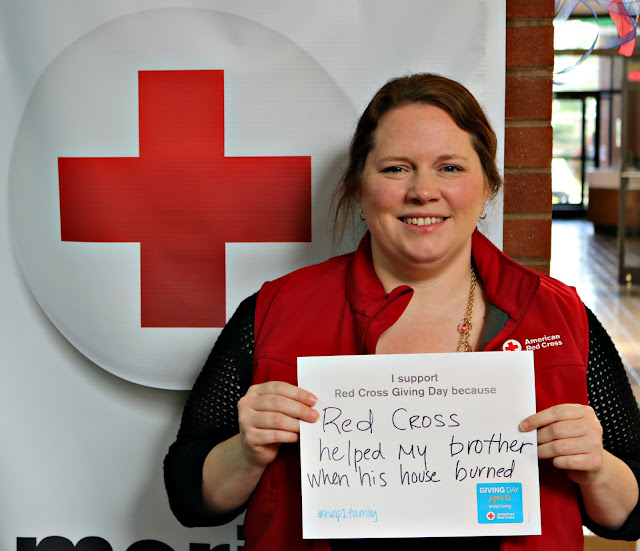 American
Red Cross
I support
Red Cross Giving Day because
Red Cross
helped my brother
when his house burned
#help1family
GIVING DAY
April 21
#help1family
American
Red Cross
meri